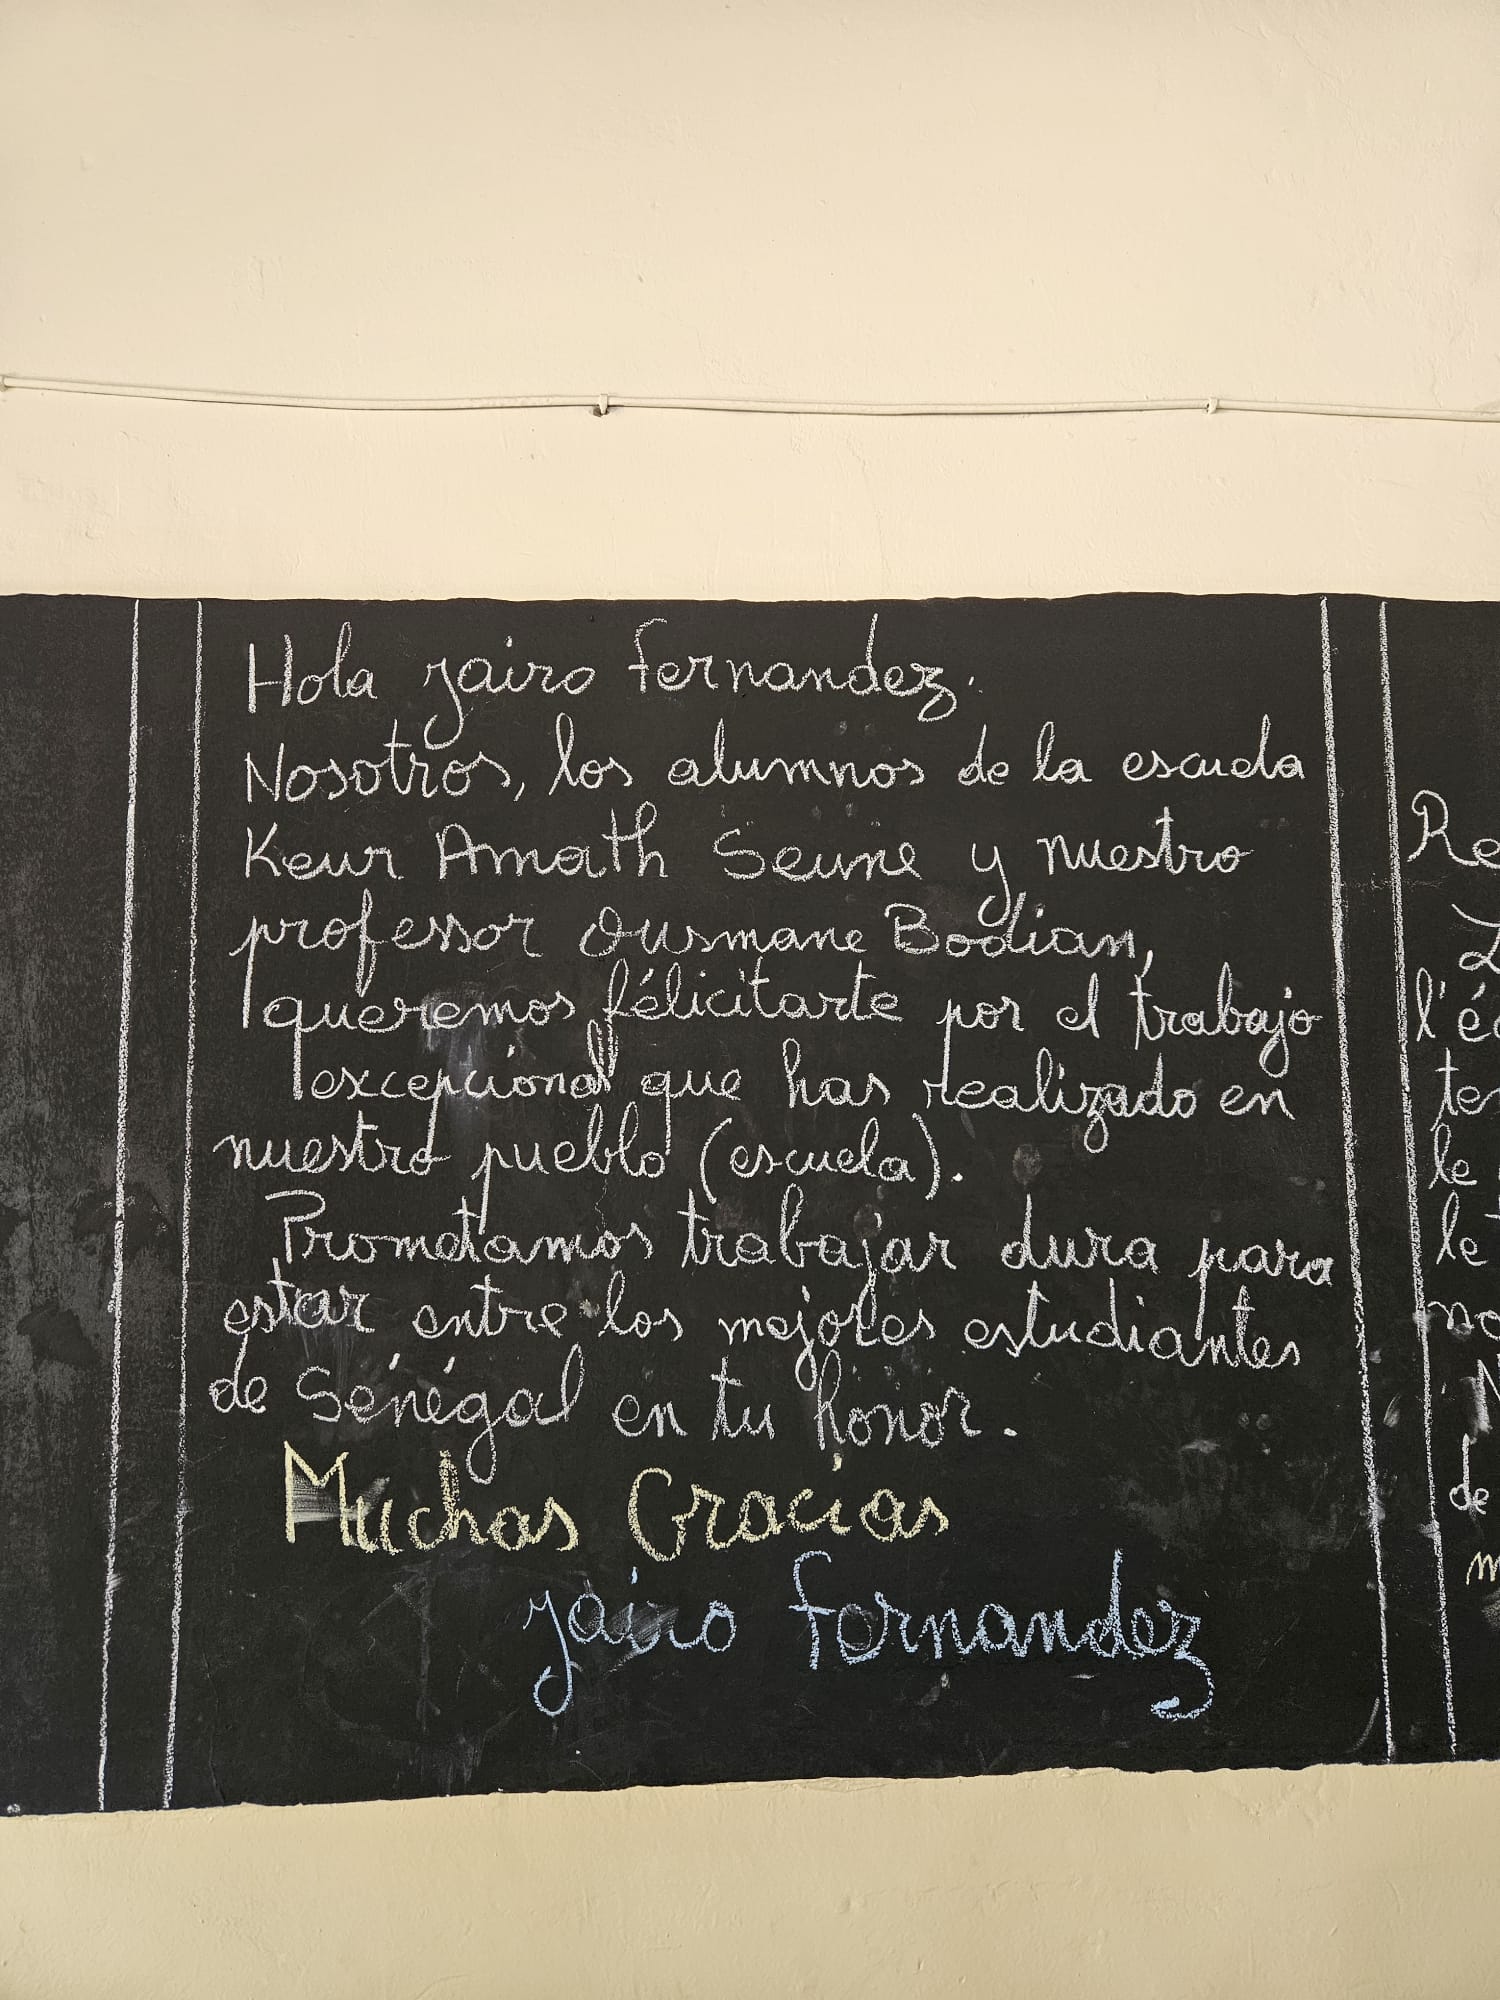 Hola jairo fernandez.
Nosotros, los alumnos de la escuela
Keur Amath Seune y nuestro
professor Ousmane Bodian,
queremos félicitarte por el trabajo
excepcional que has realizado en
nuestro pueblo (escuela).
Prometamos trabajar dura para
estar entre los mejores estudiantes
de Sénégal en tu honor.
Muchas Gracias
jairo fernandez
Re
l'éc
le
le
no
N
de
m